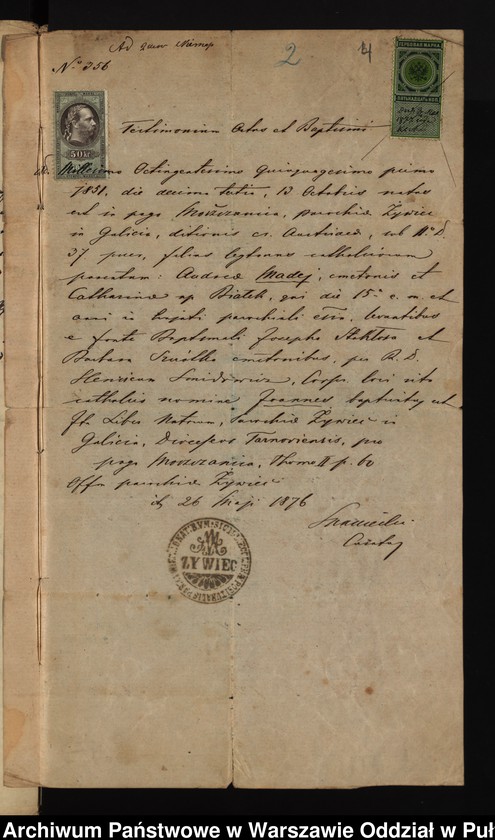 Ad
2
4
N° 356
ГЕРБОВАЯ МАРКА
ПЯТЬНАДЦАТЬ КОП.
50 Kr
Testimonium Ortus et Baptismi
Millesimo Octingentesimo Quinquagesimo primo
1851, die decima tertia, 13 Octobris natus
est in pago Moszczanica, parochiae Żywiec
in Galicia, ditionis cs. Austriacae, sub N° D.
37 puer, filius legitimus catholicorum
parentum: Andreae Madej, cmetonis et
Catharinae Białek, qui die 15a e. m. et
anni in hujati parochiali levantibus
e fonte Baptismali Josepho et
Barbara cmetonibus, per R. D.
Henricum Coop. loci ritu
catholico nomine Joannes baptisatus est
Ita Liber Natorum, parochiae Żywiec in
Galicia, Dioecesos Tarnoviensis, pro
pago Moszczanica, Thome II p. 60
Offm parochiae Żywiec
d. 26 Maji 1876
ZYWIEC
Archiwum Państwowe w Warszawie Oddział w Puł